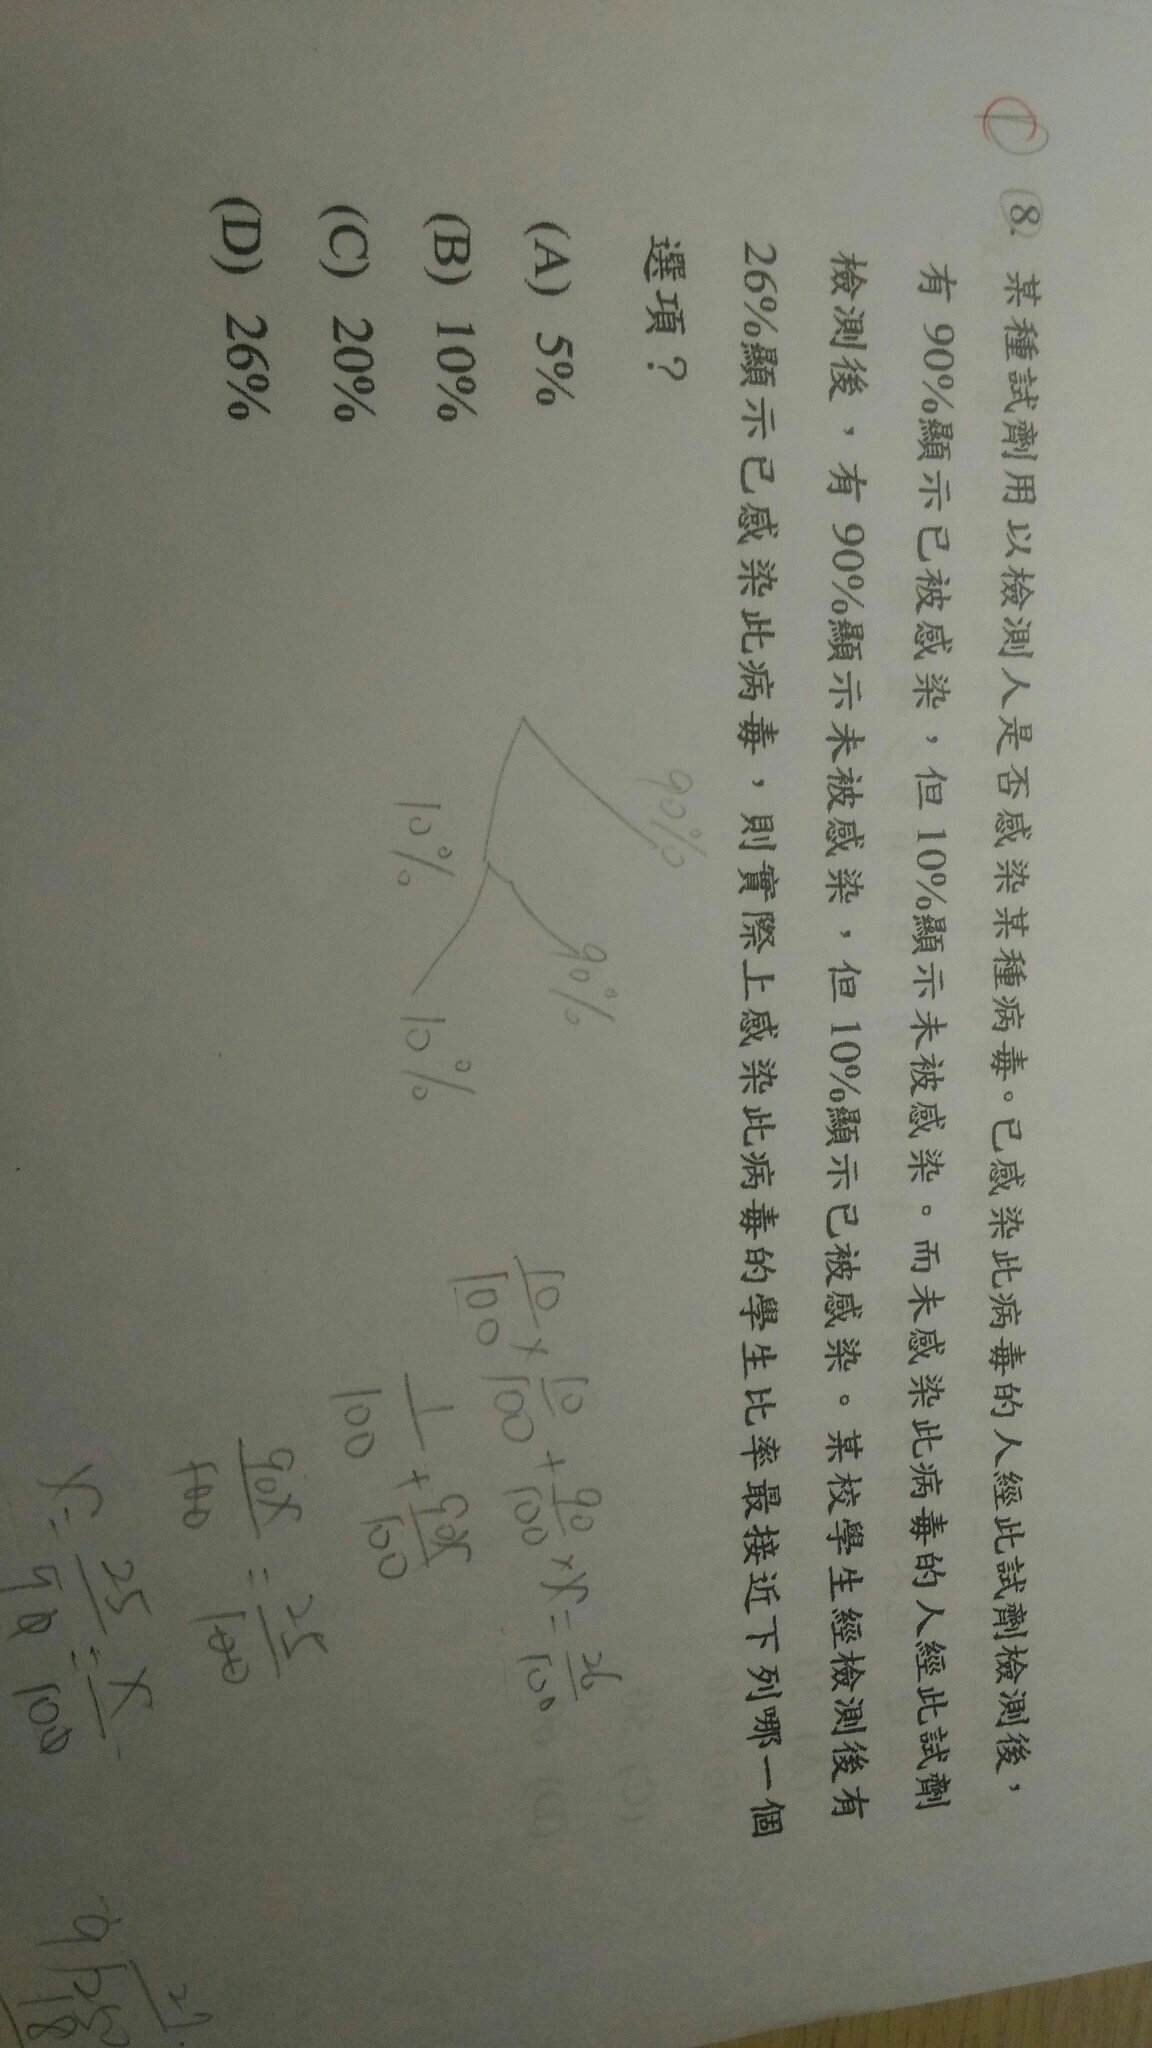 8. 某種試劑用以檢測人是否感染某種病毒。已感染此病毒的人經此試劑檢測後，
有 90%顯示已被感染，但 10%顯示未被感染。而未感染此病毒的人經此試劑
檢測後，有 90%顯示未被感染，但 10%顯示已被感染。某校學生經檢測後有
26%顯示已感染此病毒，則實際上感染此病毒的學生比率最接近下列哪一個
選項？
(A) 5%
(B) 10%
(C) 20%
(D) 26%
90%
90%
10%
10%
10/100 × 10/100 + 90/100 × X = 26/100
1/100 + 90X/100
90X/100 = 25/100
X = 25/90 = X/100